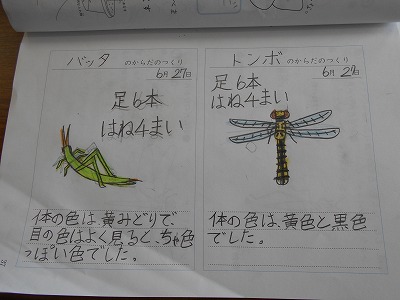 バッタ のからだのつくり
6月27日
足6本
はね4まい
体の色は、黄みどりで、
目の色はよく見ると、ちゃ色
っぽい色でした。
トンボ のからだのつくり
6月27日
足6本
はね4まい
体の色は、黄色と黒色
でした。